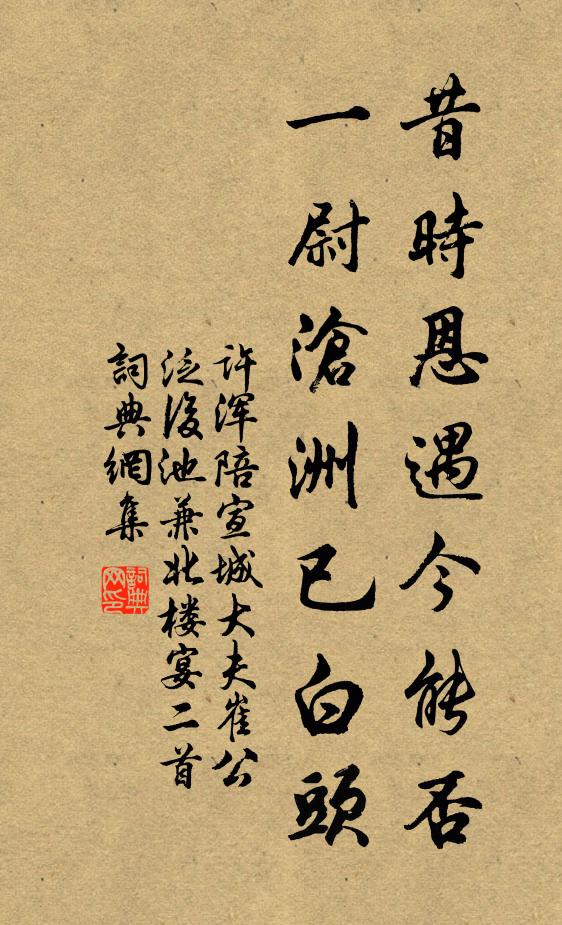 昔時恩遇今能否
一尉滄洲已白頭
許渾陪宣城大夫崔公
泛後池兼北楼宴二首
詞典網集
詞典网印